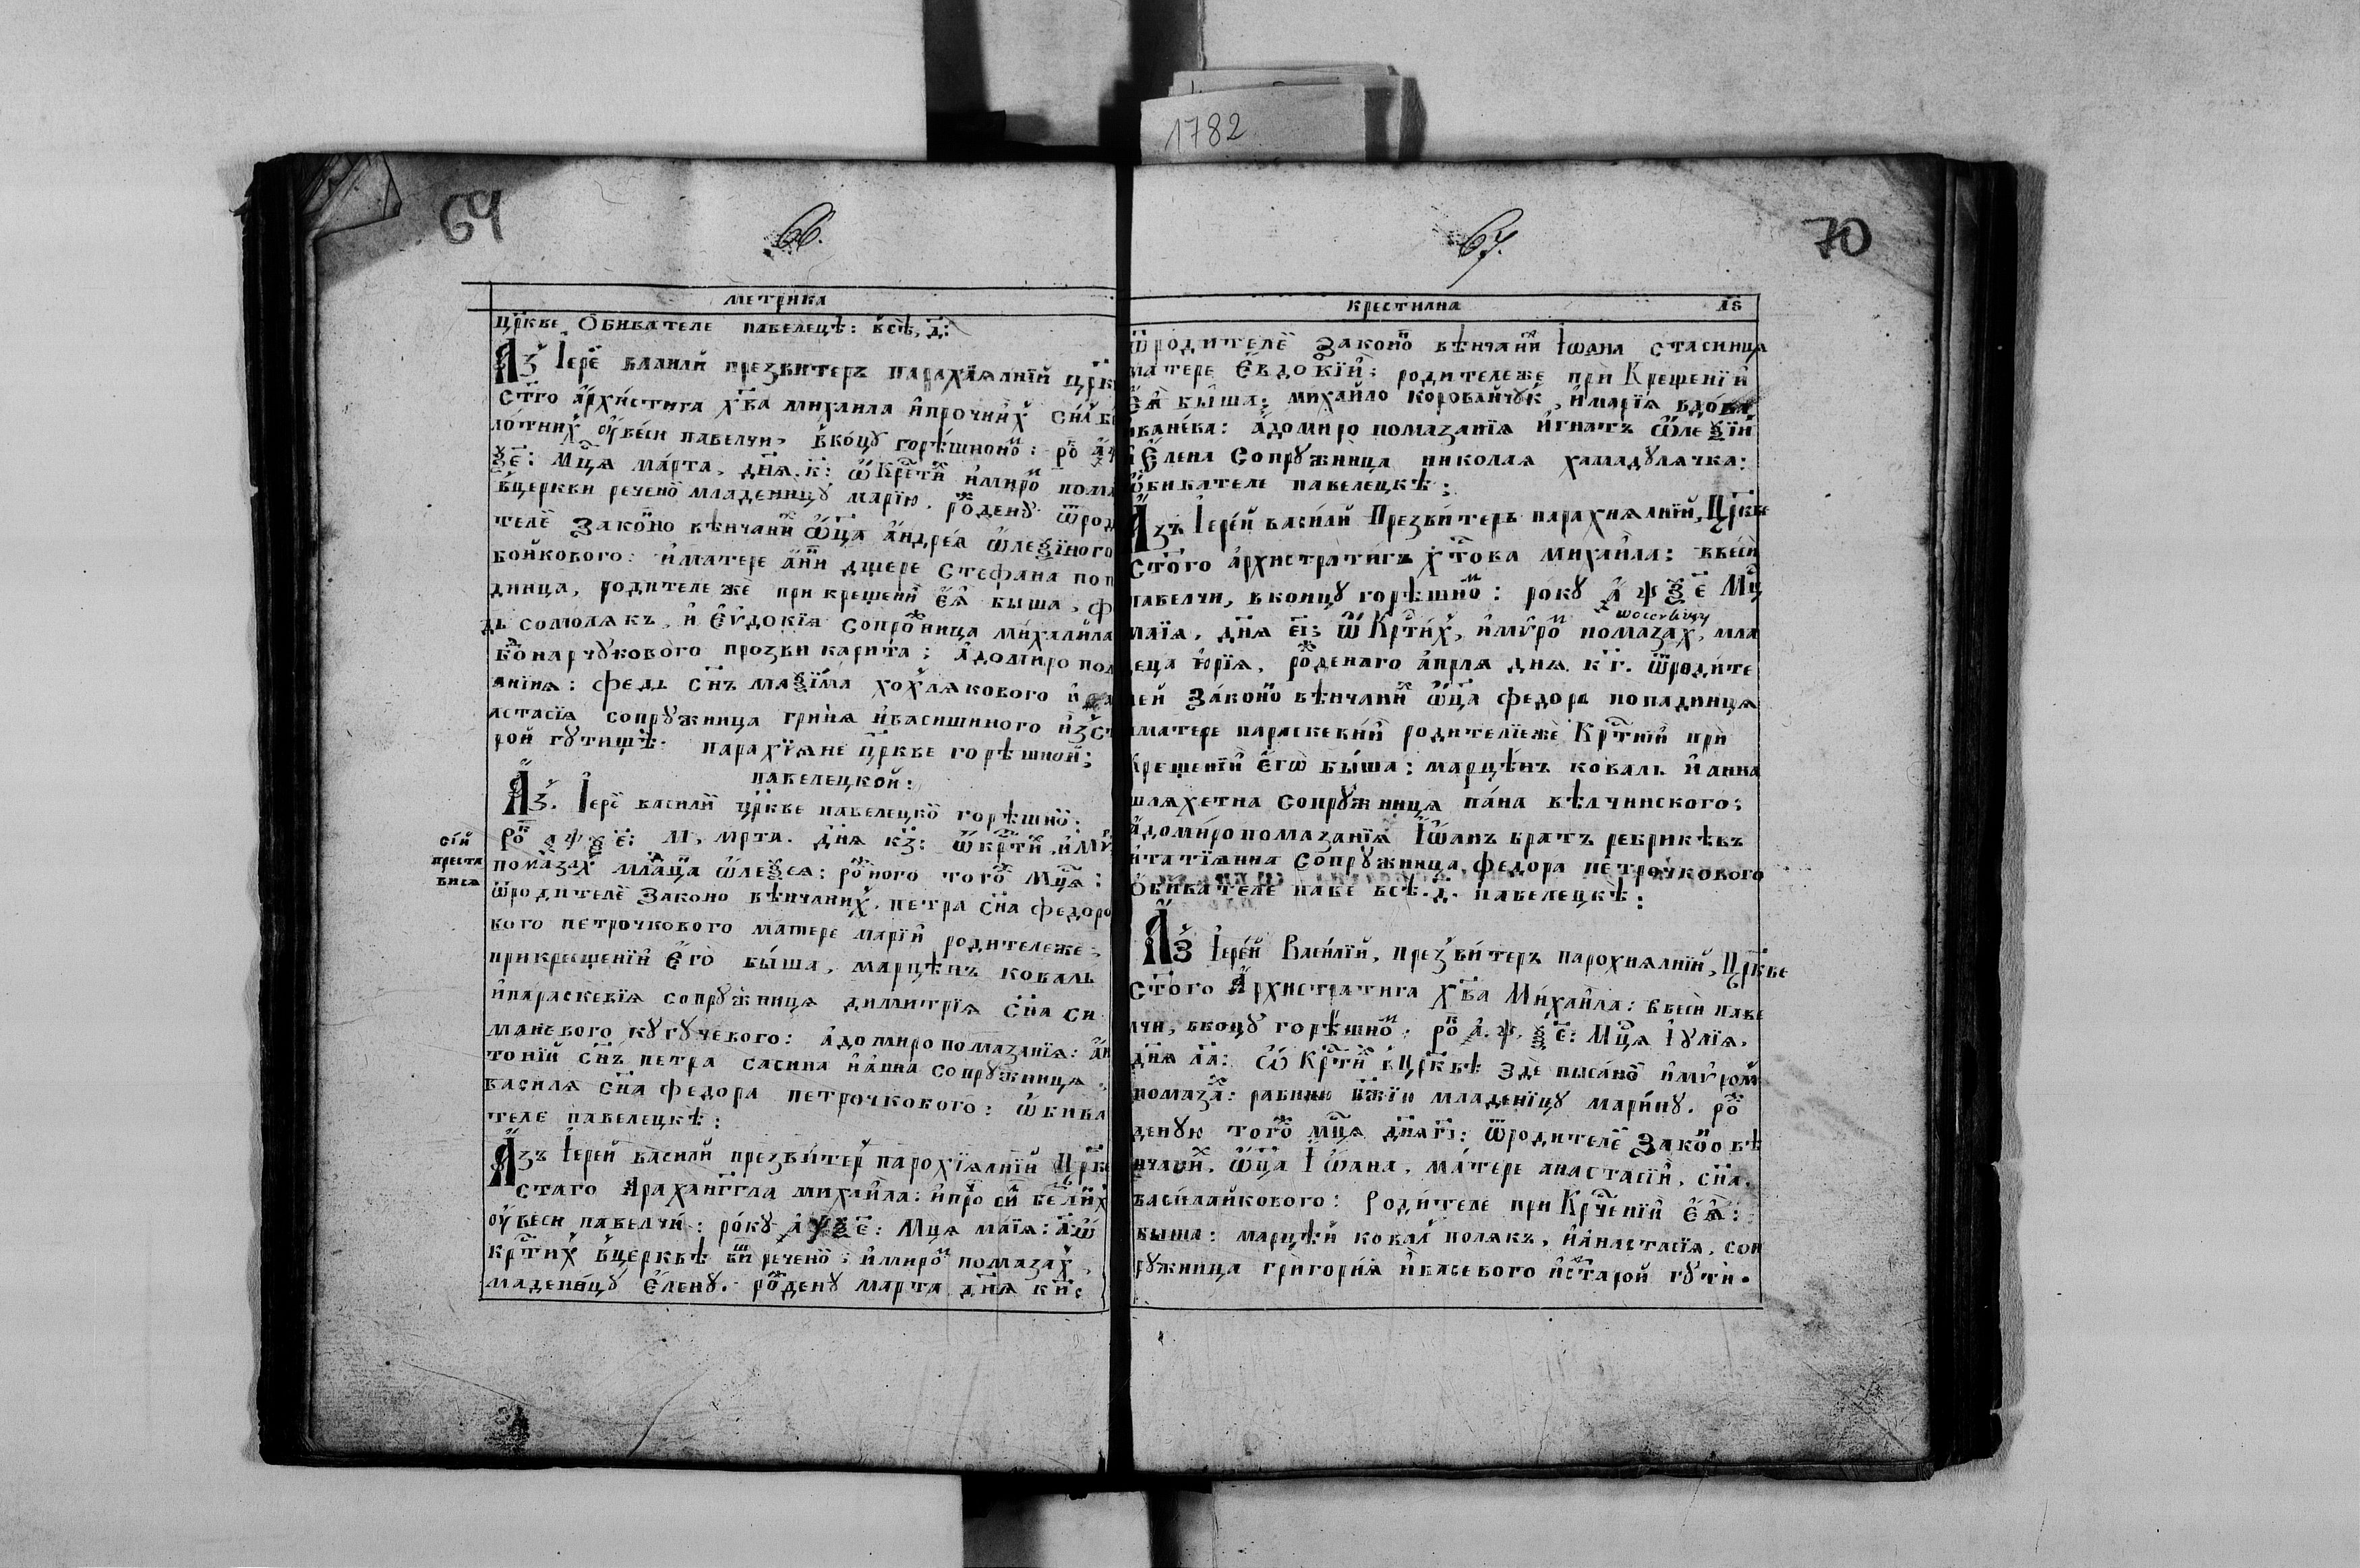 1782
69
66.
метрика
црⷭ҇кве Ѻбивателе павелецѣ: всѣ, д҃:
Аз Іерей василий презвитерь парахїѧлнїй црк
стⷢ҇о архистига хв҃а михаила ипрочиих
лотних оувеси павелчи, вкоцу горѣшноⷨ:
мцⷭ҇ѧ марта, днѧ. к҃: ѿ Кретⷯи имироⷨ пома
вцеркви реченоⷨ младеницу марїю. рⷪжденꙋ ѿрод
телеⷨ Законно вѣнчани ѿца андреа ѡлеѯїного
войкового: иматере анни дщере Стефана поп
динца, родителе же при крещени еѧ быша, ф
дь сомолѧкъ, и Еѵдокїѧ Сопрⷪжница михаийла
боⷩнарчукового прозви карита; адомиро пом
анїиѧ: федь сн҃ъ маѯїма хохлѧкового и
астасїѧ сопружница гринѧ ивасишиного изст
рой гутищѣ. парахїѧне црⷭ҇кве горѣшной;
павелецкой:
Аз. Іереⷨ василий црⷭ҇кве павелецкоⷨ горѣшноⷨ.
роⷦ҇ ҂аѱѯе: м, мрта. днѧ кз: ѿ кртⷯи, имѵ
сїй
преста
висѧ
помазах млⷣаца ѡлеѯеѧ: рⷪного тогоⷤ мцⷭ҇ѧ:
ѿродителеⷨ Законо вѣнчаних. петра сн҃а федоро
кого петрочкового матере марїи родитележе:
прикрещенїи Его быша, марцѣнъ коваль
ипараскевїѧ сопружницѧ димитрїѧ сн҃а си
маневого кугучевого: адомиро помазанїѧ: ан
тоний сн҃ъ петра сасина ианна сопружницѧ
василѧ сн҃а федора петрочкового: ѡбива
теле павелецкѣ:
Азъ Іерей василий презвитер парохїѧлнїй Црⷭ҇кв
стаго Арахангг҃ла михаила: ипрⷪ си белⷧих
оувеси павелчи: року ҂аѱѯе: Мцѧ маїѧ: а҃ ѿ
кртих вцерквѣ вⷲи реченоⷨ; имироⷨ помазах,
маденицу Елену. рⷪжⷣдену марта днѧ ки҃:
70
67.
крестилна
лѕ
ѿродителеⷨ Законноⷨ вѣнчани Іѡана стасинца
матере Евдокїи; родитележе при Крещенїи
Еѧ быша: михайло коровайчук, имарїѧ вдова
иванева: адомиро помазанїѧ игнатъ ѡлеѯїй
и Елена Сопружница николаѧ хамадулѧчка:
ѡбивателе павелецкѣ;
Азъ Іерей василий Презвитерь парахиѧлнїй, Црⷭ҇кве
Стⷪго архистратигъ хⷭ҇това михаила: ввеси
павелчи, вконцу горѣшноⷨ: року ҂а ѱ ѯ е Мц
маїѧ, днѧ еі; ѿ Кртⷯих, имѵроⷨ помазах, мла
деца юрїѧ, рⷪжденаго априлѧ днѧ. кг. ѿродите
лей Законно вѣнчани ѿца федора попадинцѧ
иматере параскевии родителїеже Кртⷭнїи при
Крещенїи Егѡ быша; марцѣнъ коваль и анна
шлѧхетна сопружницѧ пана вѣлчинского;
адомиропомазанїѧ Іѡанъ братъ ребрикѣвъ
итатїѧнна сопружница, федора петрочкового
ѡбивателе паве всѣ. д҃. павелецкѣ;
Аз Іерей Василїй, презвитеръ парохиѧлнїй, Црⷭ҇кве
Стⷪго Архистратига хв҃а Михаила: ввеси паве
лчи, вкоцу горѣшноⷨ: роⷦ҇ ҂а. ѱ. ѯ е: Мцⷭ҇ѧ Іулїѧ.
днѧ ла: ѿ Кртⷯи вЦрⷭ҇квѣ зде писаноⷨ имѵром
помаза: рабиню бж҃їю младеницу марину. рⷪж
деную тогоⷤ мцⷭ҇ѧ днѧ гі: ѿродителеⷨ Законо вѣ
нчани. ѿца Іѡана, матере анастасїи, сн҃а.
василайкового: Родителе при Крⷳченїи Еѧ:
быша: марцѣй ковал полѧкъ, ианастасїѧ, соп
ружница григориѧ ивасевого истарой гути.